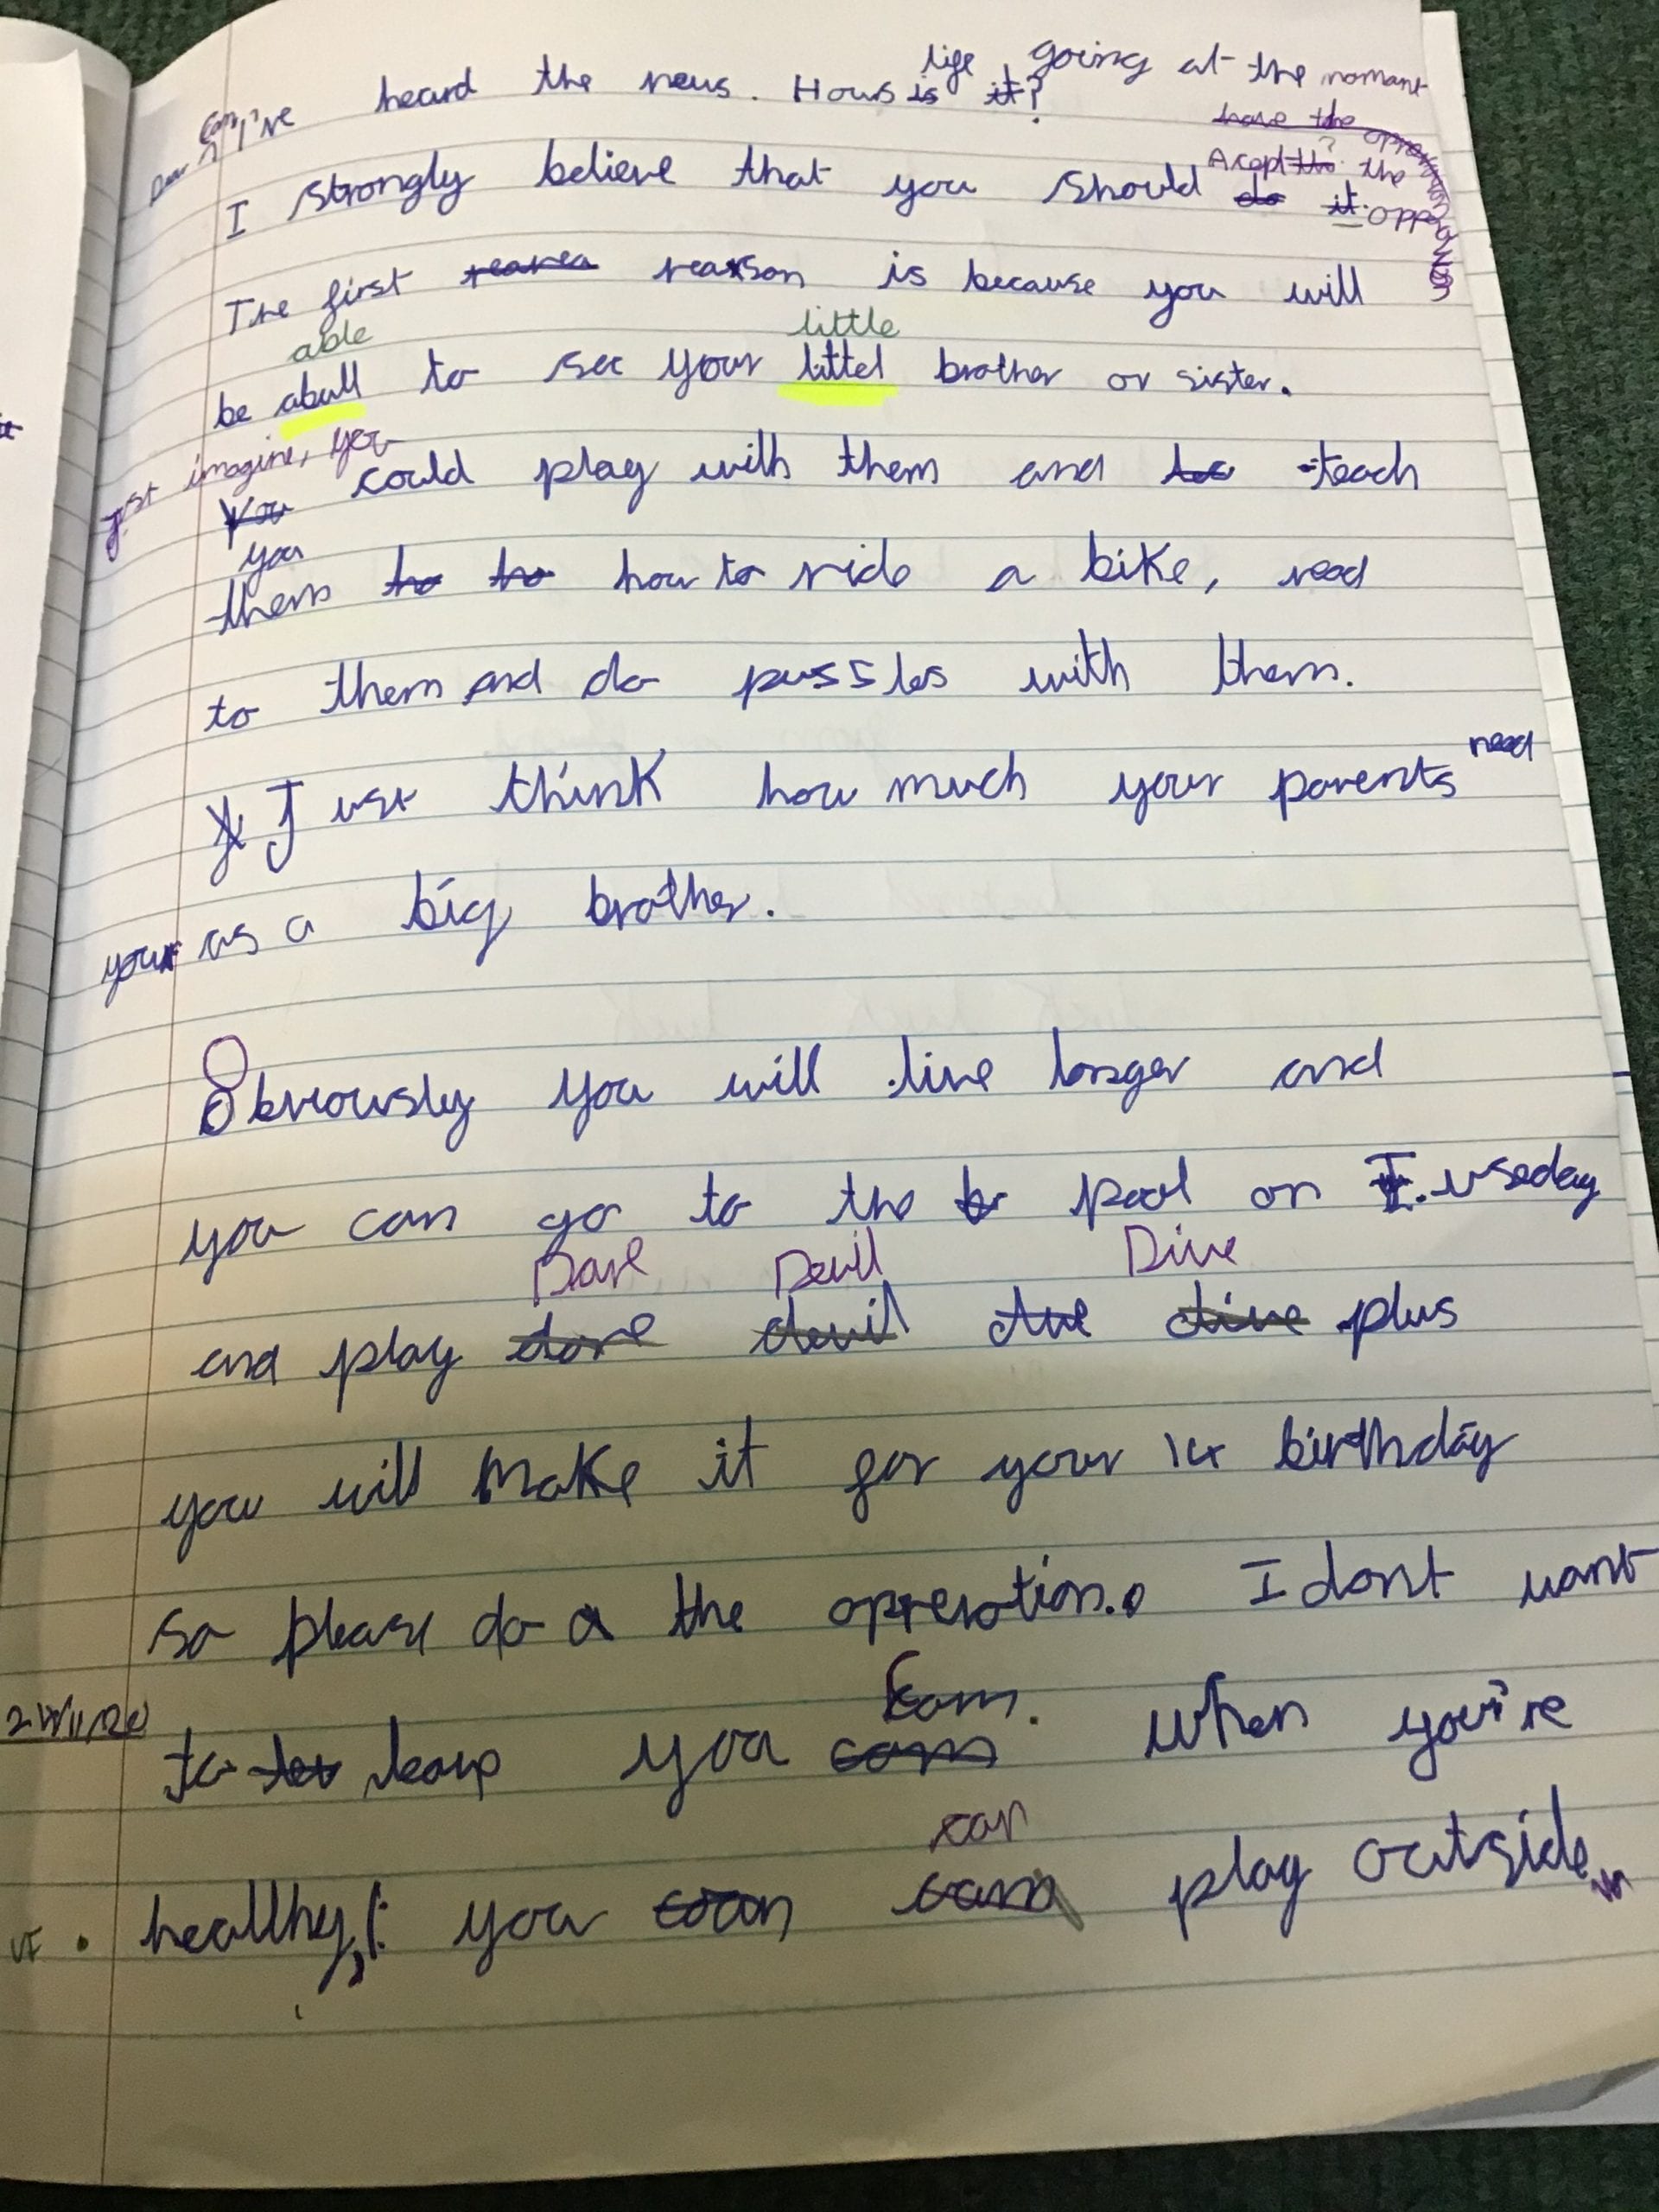 life going at the momant
Dear Cam, I've heard the news. Hows is it?
have the opreration
Acept the the
I strongly believe that you should do it. oppe
The first reason is because you will
able little
be abull to see your littel brother or sister.
just imagine, you
You could play with them and to teach
you
them to to how to ride a bike, read
to them and do pussles with them.
Just think how much your parents need
your as a big brother.
Obviously you will live longer and
you can go to the pool on Tuseday
Dare Devil Dive
and play dare devil dive plus
you will make it for your 14 birthday
so please do a the opreration. I dont want
Cam.
to keep you cam When you're
can
healhy, you can play outside
VF